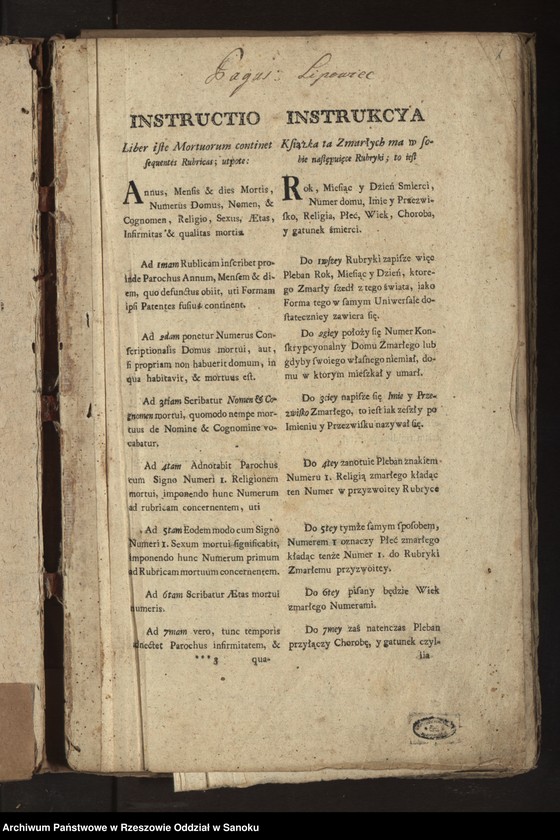 Pagus: Lipowiec
INSTRUCTIO
Liber iste Mortuorum continet
sequentes Rubricas; utpote:
Annus, Mensis & dies Mortis,
Numerus Domus, Nomen, &
Cognomen, Religio, Sexus, Ætas,
Infirmitas & qualitas mortis.
Ad 1mam Rublicam inscribet pro-
inde Parochus Annum, Mensem & di-
em, quo defunctus obiit, uti Formam
ipsi Patentes fusius continent.
Ad 2dam ponetur Numerus Con-
scriptionalis Domus mortui, aut,
si propriam non habuerit domum, in
qua habitavit, & mortuus est.
Ad 3tiam Scribatur Nomen & Co-
gnomen mortui, quomodo nempe mor-
tuus de Nomine & Cognomine vo-
cabatur.
Ad 4tam Adnotabit Parochus
cum Signo Numeri 1. Religionem
mortui, imponendo hunc Numerum
ad rubricam concernentem, uti
Ad 5tam Eodem modo cum Signo
Numeri 1. Sexum mortui significabit,
imponendo hunc Numerum primum
ad Rubricam mortuum concernentem.
Ad 6tam Scribatur Ætas mortui
numeris.
Ad 7mam vero, tunc temporis
adnectet Parochus infirmitatem, &
***3 qua-
INSTRUKCYA
Książka ta Zmarłych ma w so-
bie następuiące Rubryki; to iest
Rok, Miesiąc y Dzień Smierci,
Numer domu, Imie y Przezwi-
sko, Religia, Płeć, Wiek, Choroba,
y gatunek śmierci.
Do 1wszey Rubryki zapisze więc
Pleban Rok, Miesiąc y Dzień, ktore-
go Zmarły szedł z tego świata, iako
Forma tego w samym Uniwersale do-
stateczniey zawiera się.
Do 2giey położy się Numer Kon-
skrypcyonalny Domu Zmarłego lub
gdyby swoiego własnego niemiał, do-
mu w ktorym mieszkał y umarł.
Do 3ciey napisze się Imie y Prze-
zwisko Zmarłego, to iest iak zeszły po
Imieniu y Przezwisku nazywał się.
Do 4tey zanotuie Pleban znakiem
Numeru 1. Religią zmarłego kładąc
ten Numer w przyzwoitey Rubryce
Do 5tey tymże samym sposobem,
Numerem 1 oznaczy Płeć zmarłego
kładąc tenże Numer 1. do Rubryki
Zmarłemu przyzwoitey.
Do 6tey pisany będzie Wiek
zmarłego Numerami.
Do 7mey zaś natenczas Pleban
przyłączy Chorobę, y gatunek czyl-
lia
Archiwum Państwowe w Rzeszowie Oddział w Sanoku